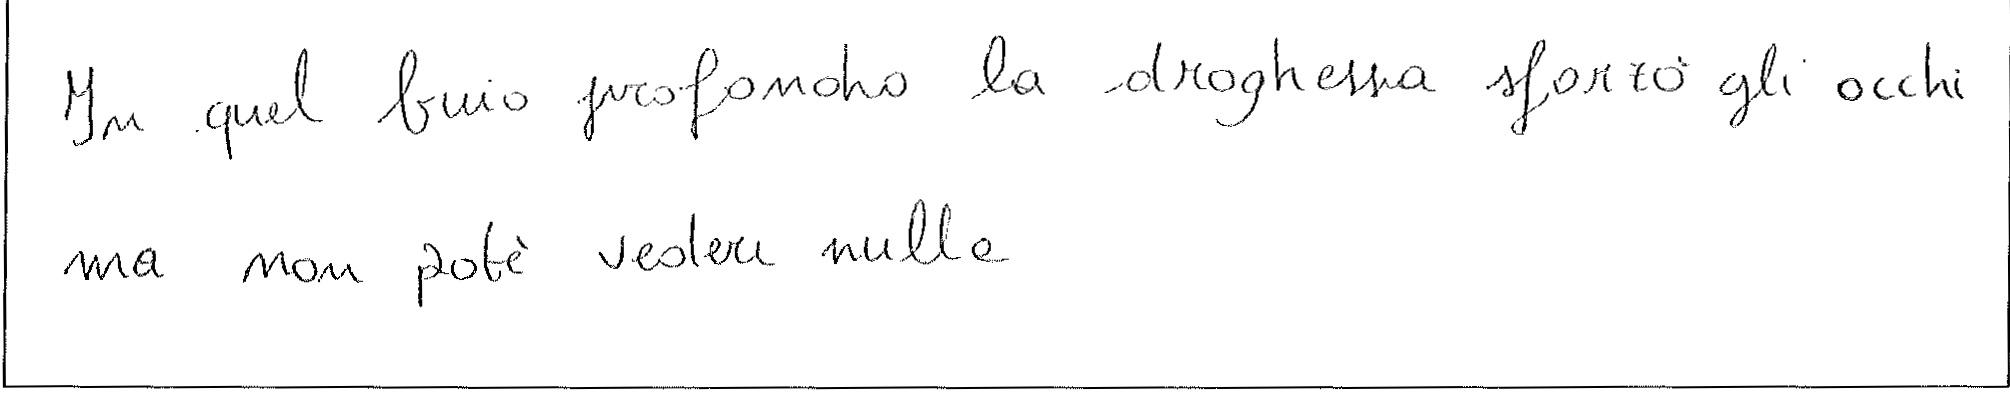 In quel buio profondo la droghessa sforzò gli occhi
ma non potè vedere nulla